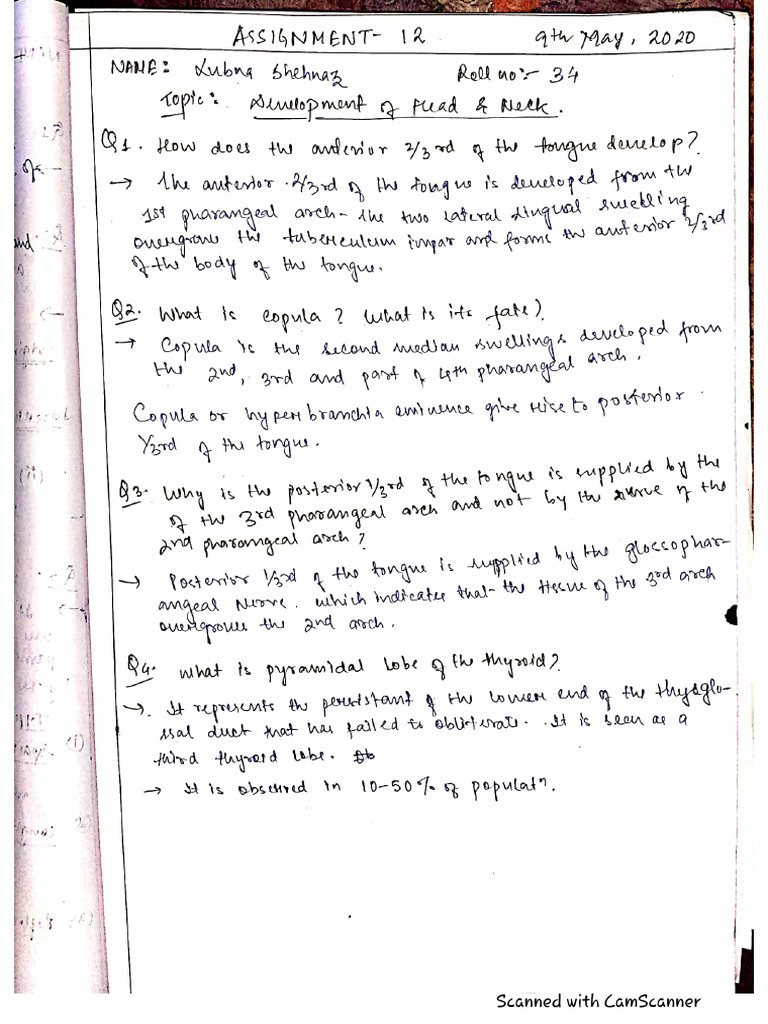 ASSIGNMENT- 12
9th May, 2020
NAME: Lubna Shehnaz
Roll no:- 34
Topic:- Development of Head & Neck.
Q1. How does the anterior 2/3rd of the tongue develop?
→ The anterior 2/3rd of the tongue is developed from the
1st pharangeal arch- The two lateral lingual swelling
overgrows the tuberculum impar and forms the anterior 2/3rd
of the body of the tongue.
Q2. What is copula? What is its fate?
→ Copula is the second median swellings developed from
the 2nd, 3rd and part of 4th pharangeal arch.
Copula or hyperbranchia eminence give rise to posterior
1/3rd of the tongue.
Q3. Why is the posterior 1/3rd of the tongue is supplied by the
of the 3rd pharangeal arch and not by the nerve of the
2nd pharangeal arch?
→ Posterior 1/3rd of the tongue is supplied by the glossophar-
angeal Nerve. which indicates that the tissue of the 3rd arch
overgrows the 2nd arch.
Q4. What is pyramidal lobe of the thyroid?
→. It represents the persistant of the lower end of the thyroglo-
ssal duct that has failed to obliterate. It is seen as a
third thyroid lobe.
→ It is observed in 10-50% of populatn.
Scanned with CamScanner